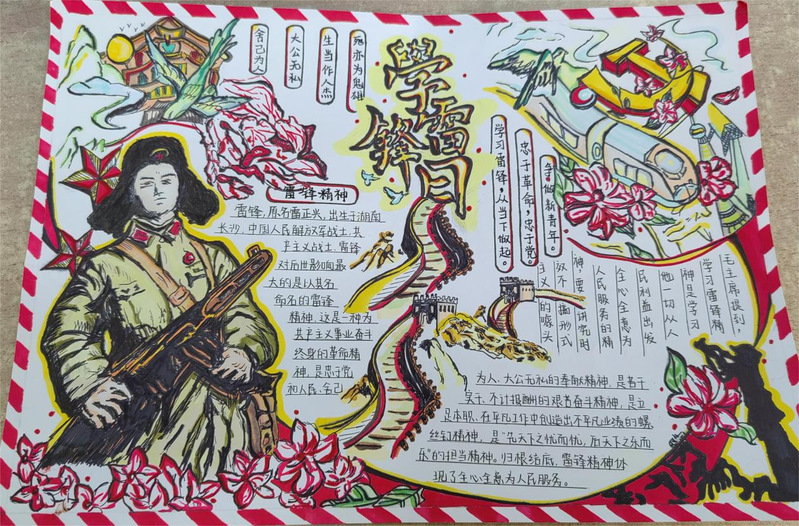 舍己为人
大公无私
生当作人杰
死亦为鬼雄
学雷锋日
学习雷锋,从当下做起。
忠于革命,忠于党。
争做新青年。
雷锋精神
雷锋,原名雷正兴,出生于湖南
长沙,中国人民解放军战士,共
产主义战士,雷锋
对后世影响最
大的是以其名
命名的雷锋
精神,这是一种为
共产主义事业奋斗
终身的革命精
神,是忠于党
和人民、舍己
为人、大公无私的奉献精神,是苦干
实干、不计报酬的艰苦奋斗精神,是立
足本职、在平凡工作中创造出不平凡业绩的螺
丝钉精神,是“先天下之忧而忧,后天下之乐而
乐”的担当精神。归根结底,雷锋精神体
现了全心全意为人民服务。
毛主席提到,
学习雷锋精
神是学习
他一切从人
民利益出发
全心全意为
人民服务的精
神,要讲究时
效不要搞形式
主义的噱头